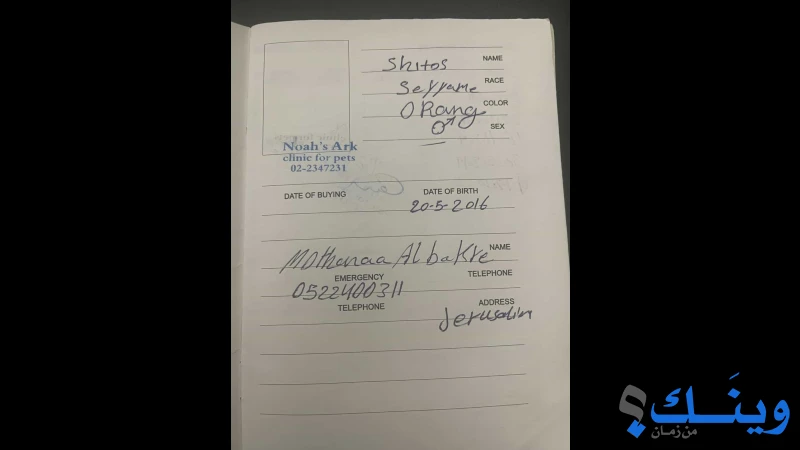 Shitos NAME
Seyyame RACE
ORang COLOR
♂ SEX
Noah's Ark
clinic for pets
02-2347231
DATE OF BUYING DATE OF BIRTH
20-5-2016
Mothanaa Albakre NAME
EMERGENCY TELEPHONE
0522400311
TELEPHONE ADDRESS
Jerusalim
وينَك؟
من زمان